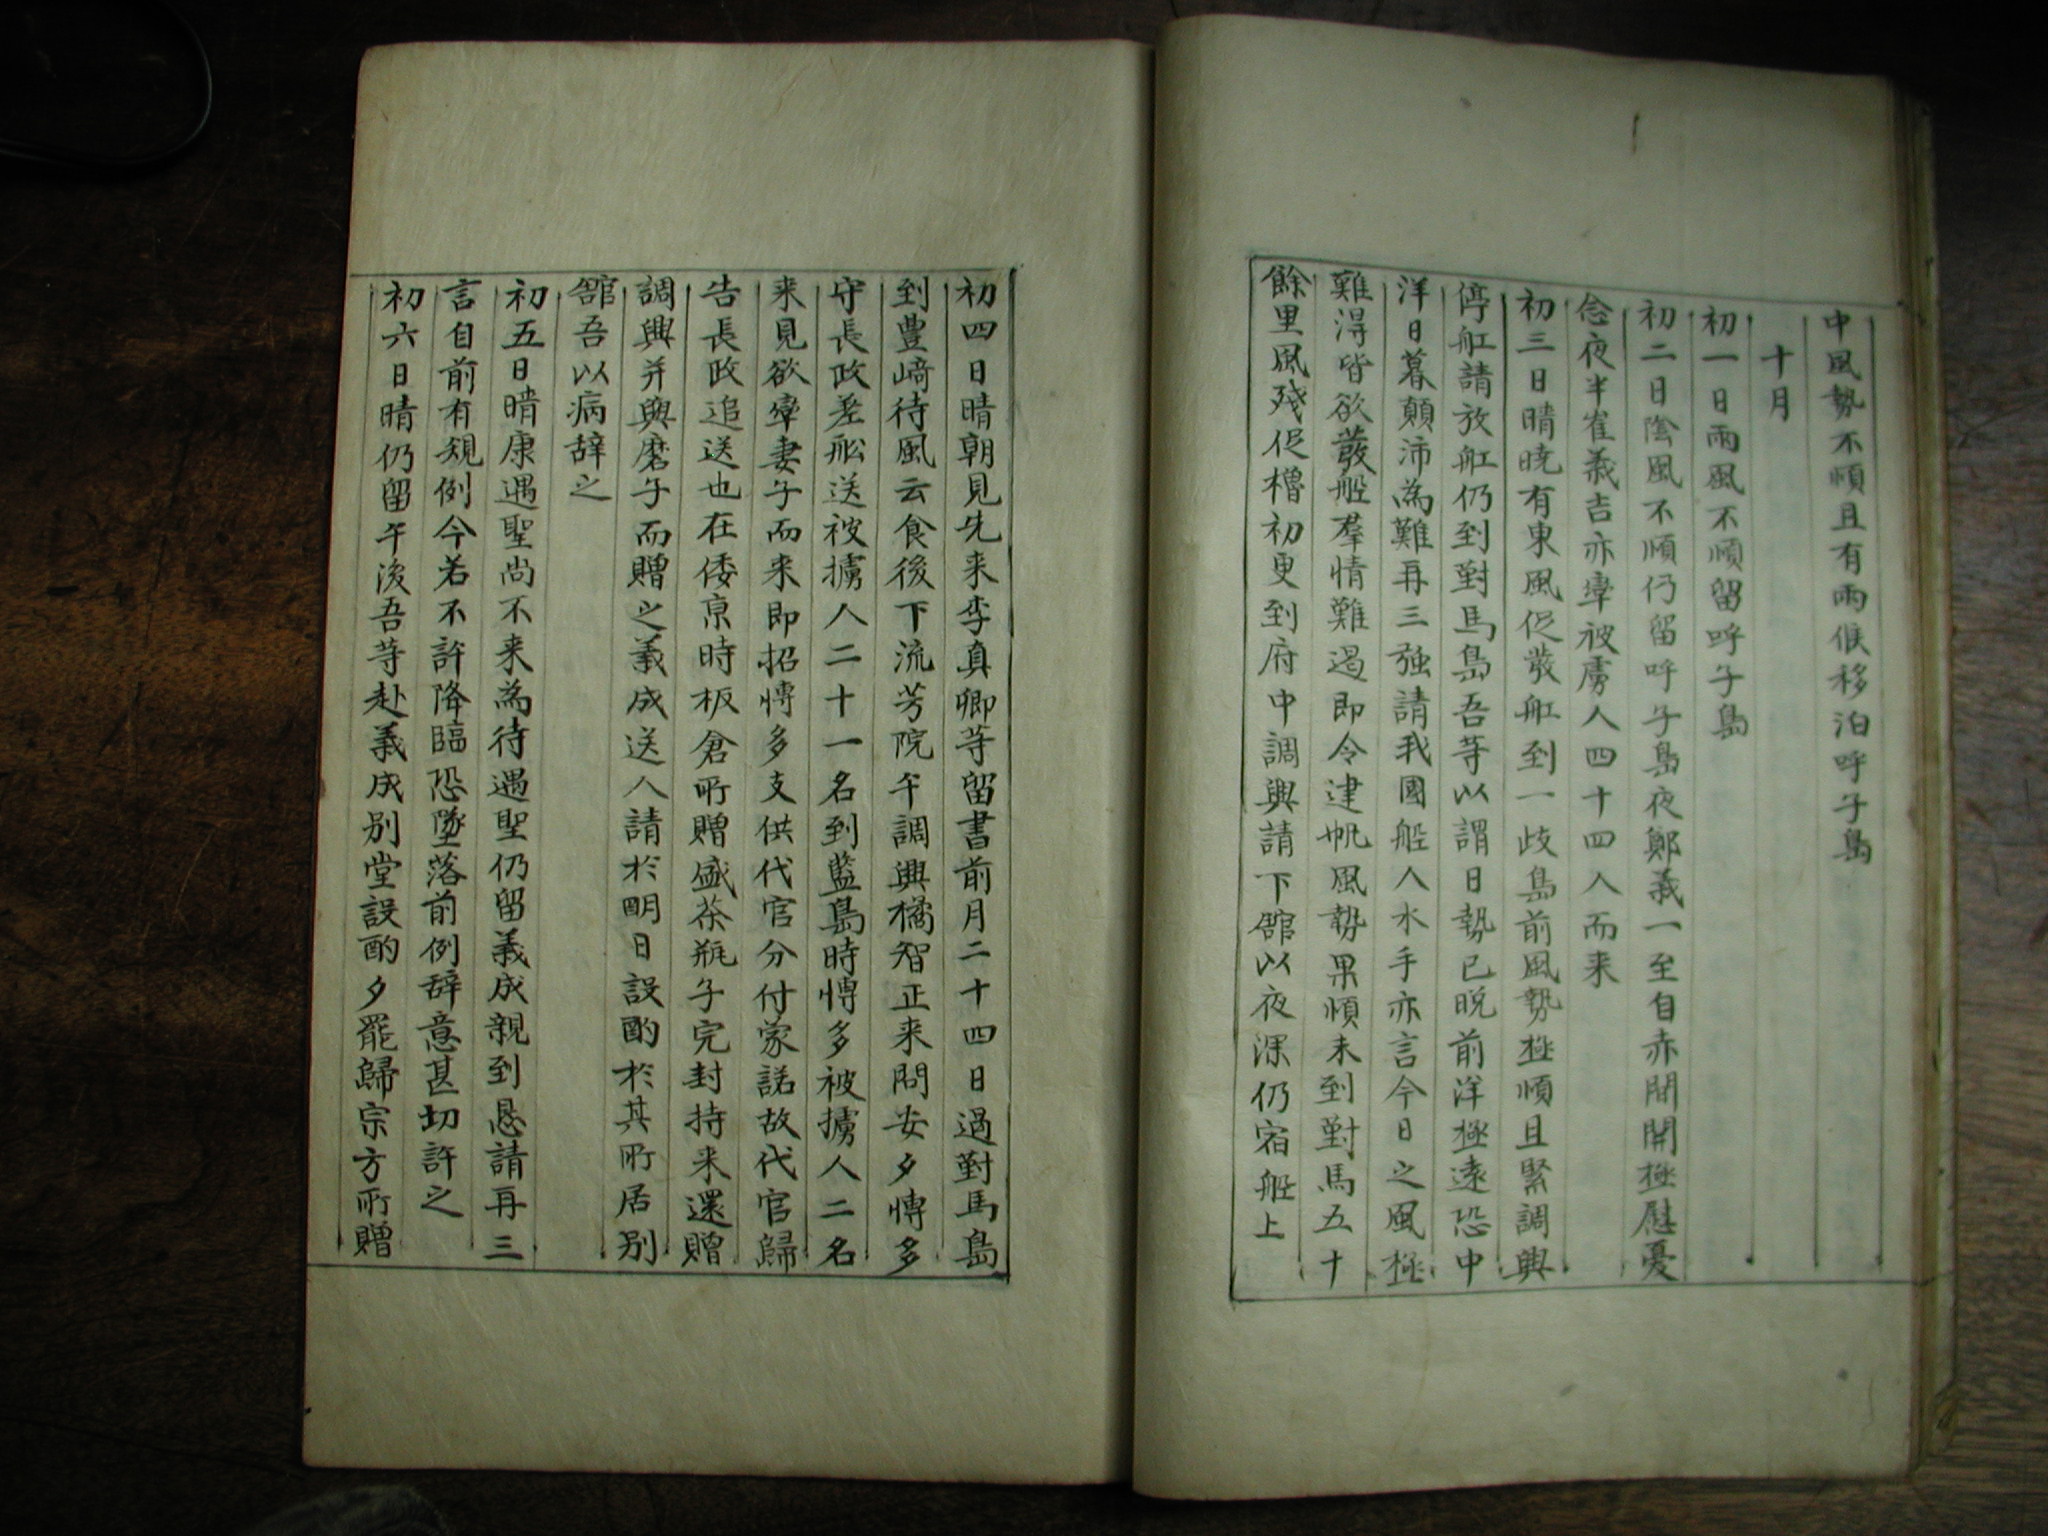 中風勢不順且有雨候移泊呼子島
十月
初一日雨風不順留呼子島
初二日陰風不順仍留呼子島夜鄭義一至自赤間關極慰憂
念夜半崔義吉亦率被虜人四十四人而来
初三日晴曉有東風促發舡到一歧島前風勢極順且緊調興
停舡請放舡仍到對馬島吾等以謂日勢已晩前洋極遠恐中
洋日暮顛沛為難再三強請我國船人水手亦言今日之風極
難得皆欲發船羣情難遏即令建帆風勢果順未到對馬五十
餘里風殘促櫓初更到府中調興請下舘以夜深仍宿船上
初四日晴朝見先来李真卿等留書前月二十四日過對馬島
到豊﨑待風云食後下流芳院午調興橘智正来問安夕愽多
守長政差舩送被擄人二十一名到藍島時愽多被擄人二名
来見欲率妻子而来即招愽多支供代官分付蒙諾故代官歸
告長政追送也在倭京時板倉所贈盛茶瓶子完封持来還贈
調興并與磨子而贈之義成送人請於明日設酌於其所居別
舘吾以病辞之
初五日晴康遇聖尚不来為待遇聖仍留義成親到恳請再三
言自前有規例今若不許降臨恐墜落前例辞意甚切許之
初六日晴仍留午後吾等赴義成別堂設酌夕罷歸宗方所贈